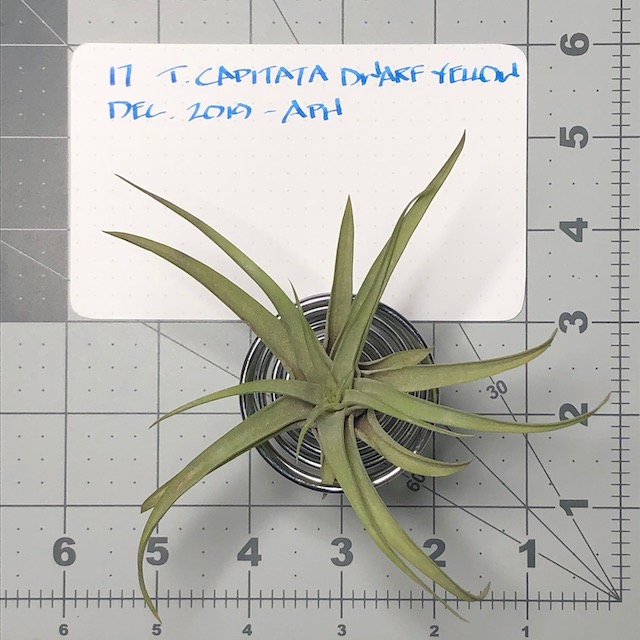 17 T. CAPITATA DWARF YELLOW
DEC. 2019 - APH
6
5
4
3
2
1
30
60
6 5 4 3 2 1
6 5 4 3 2 1